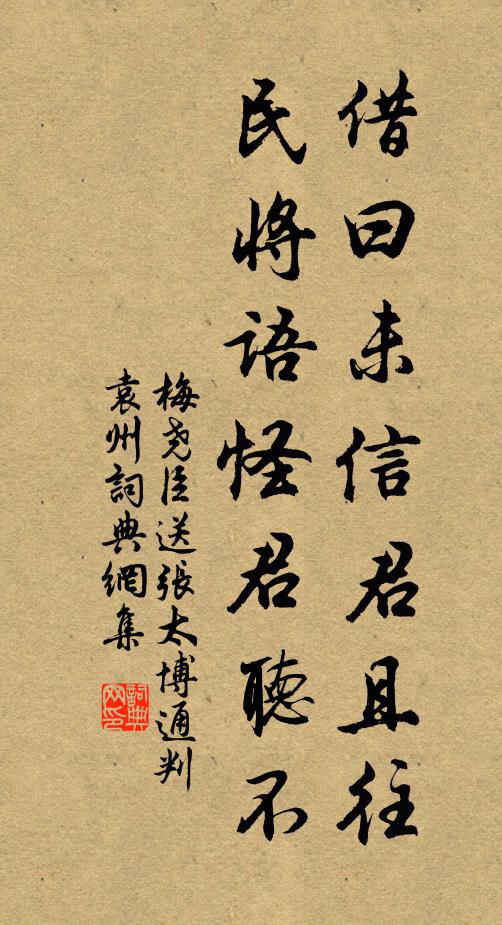 借曰未信君且往
民將語怪君聽不
梅堯臣送張太博通判
袁州詞典網集
詞典网印